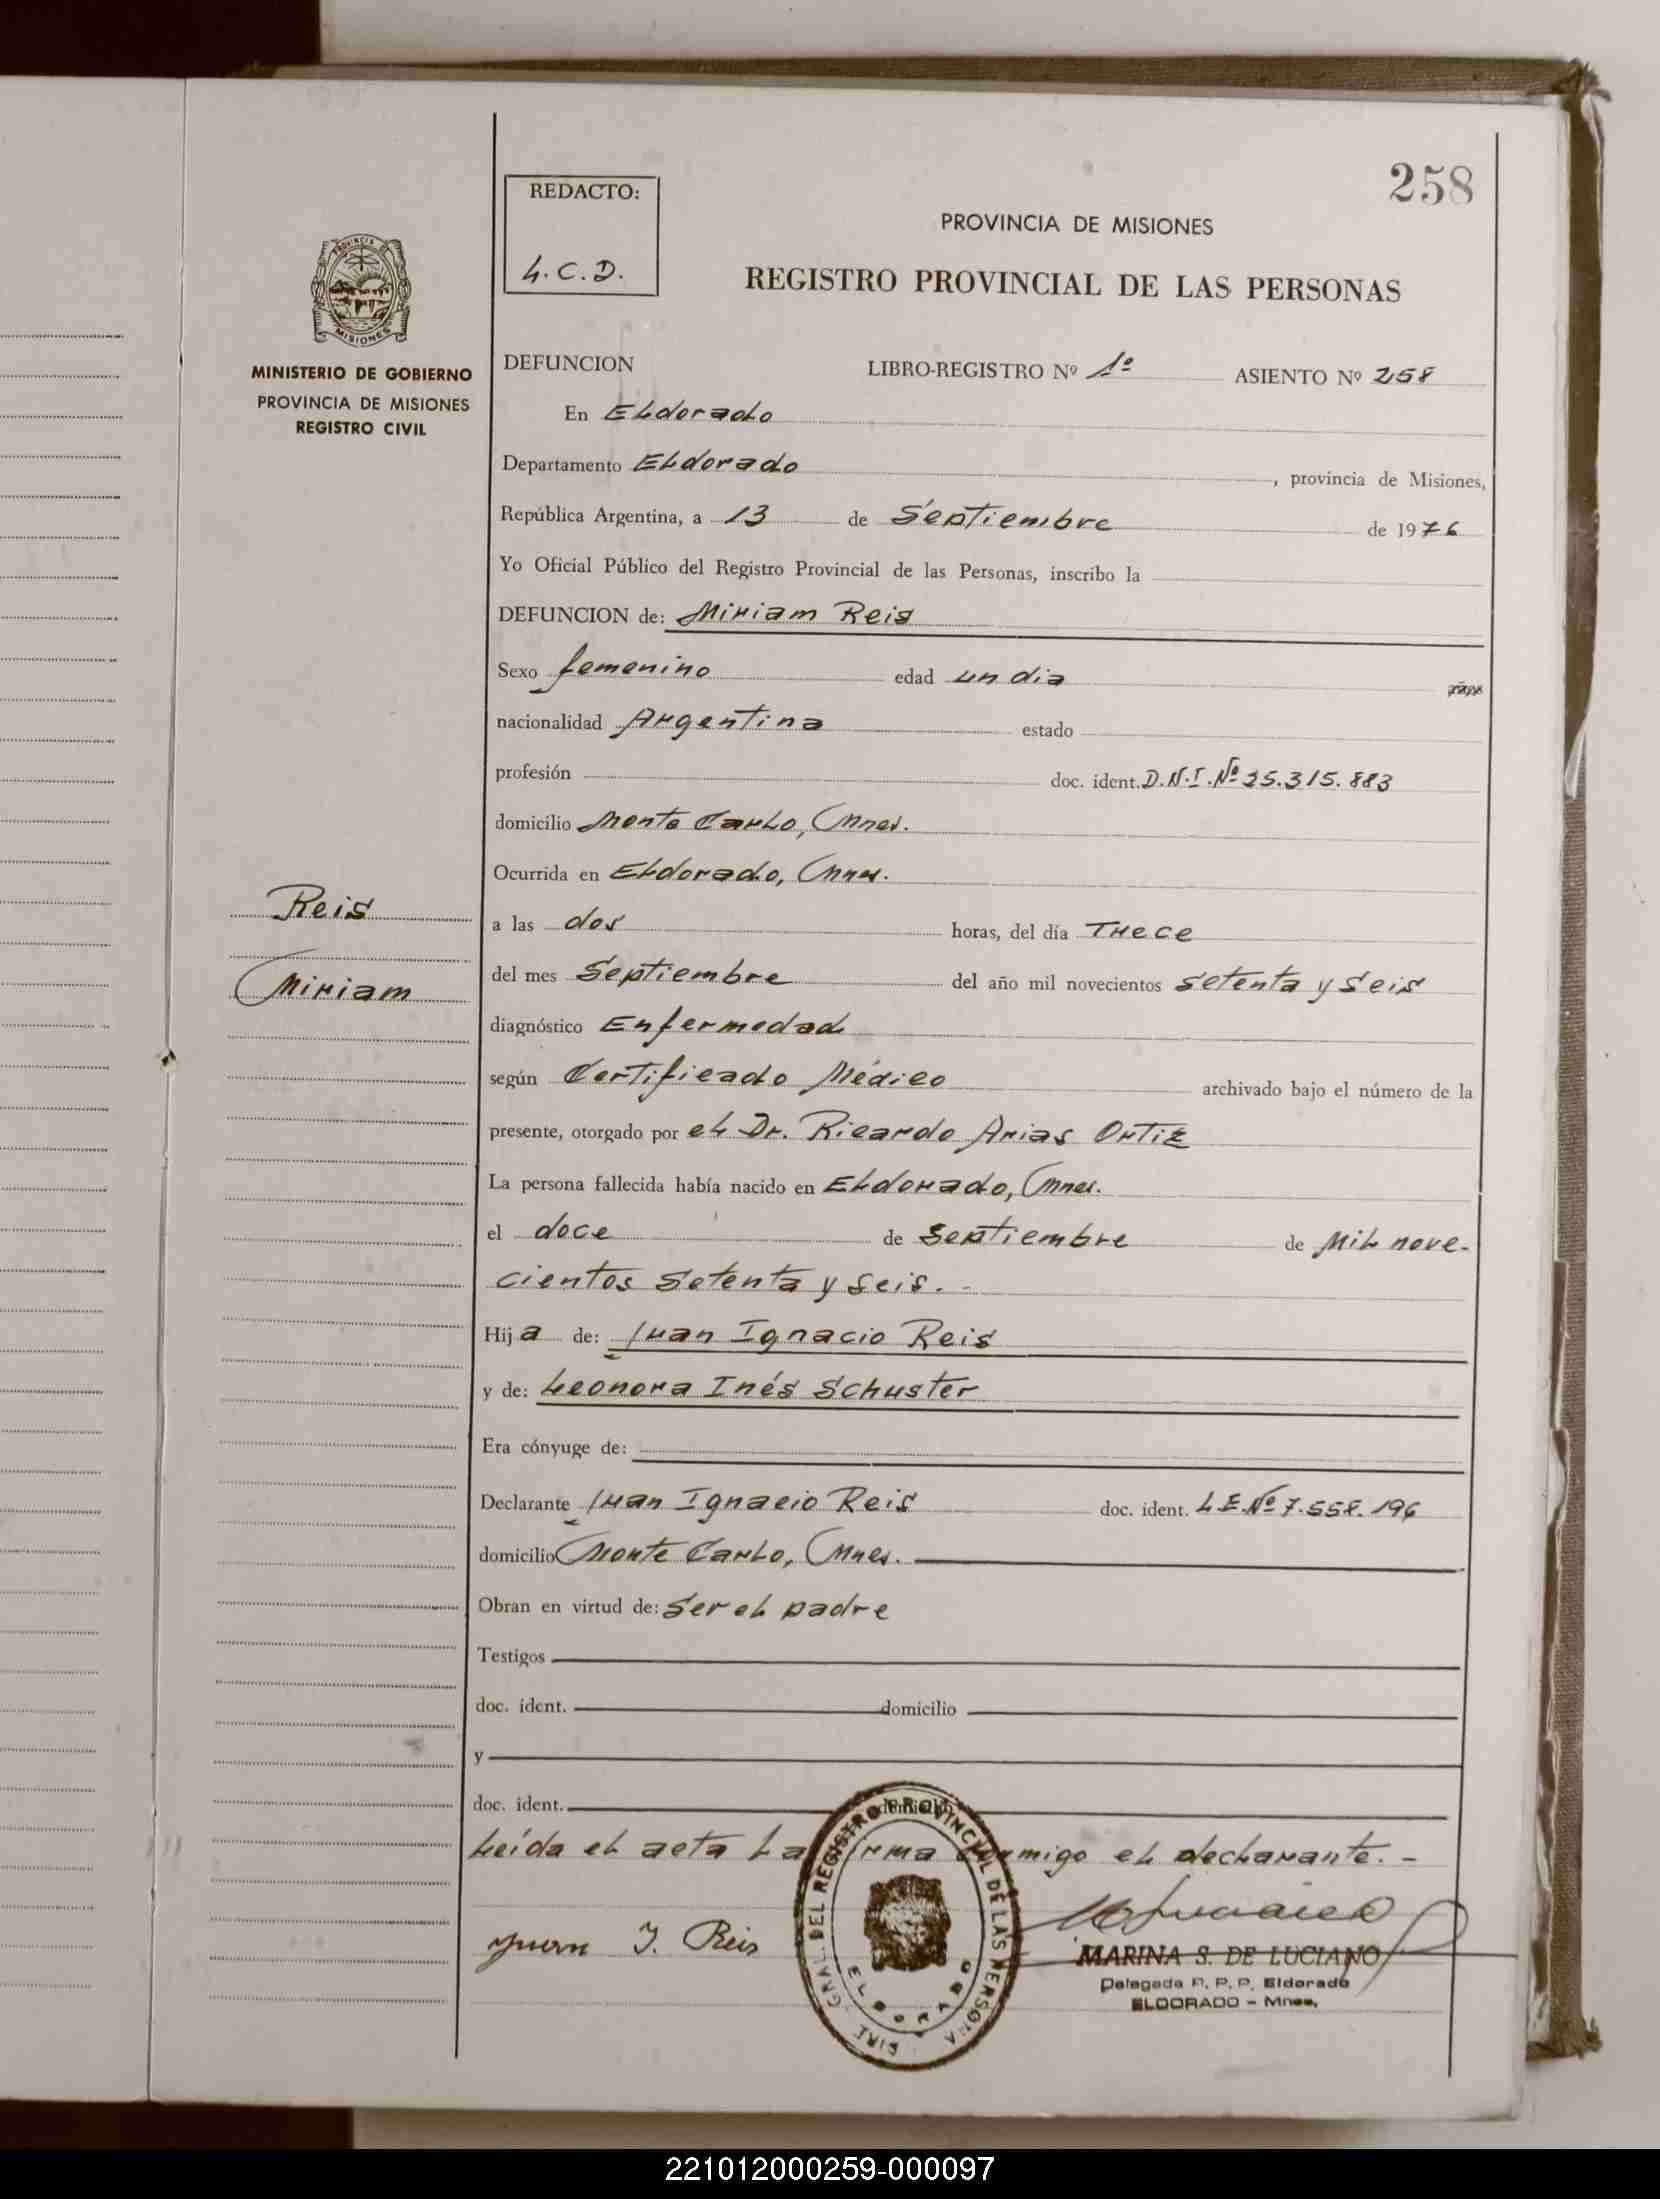 258
REDACTO:
L.C.D.
PROVINCIA DE MISIONES
REGISTRO PROVINCIAL DE LAS PERSONAS
PROVINCIA DE
MISIONES
MINISTERIO DE GOBIERNO
PROVINCIA DE MISIONES
REGISTRO CIVIL
DEFUNCION LIBRO-REGISTRO Nº 1º ASIENTO Nº 258
En Eldorado
Departamento Eldorado, provincia de Misiones,
República Argentina, a 13 de Septiembre de 1976
Yo Oficial Público del Registro Provincial de las Personas, inscribo la
DEFUNCION de: Miriam Reis
Sexo femenino edad un dia
nacionalidad Argentina estado
profesión doc. ident. D.N.I.Nº 25.315.883
domicilio Monte Carlo, Mnes.
Ocurrida en Eldorado, Mnes.
Reis
a las dos horas, del día Trece
Miriam
del mes Septiembre del año mil novecientos setenta y seis
diagnóstico Enfermedad
según Certificado Médico archivado bajo el número de la
presente, otorgado por el Dr. Ricardo Arias Ortiz
La persona fallecida había nacido en Eldorado, Mnes.
el doce de septiembre de Mil nove-
cientos setenta y seis. -
Hija de: Juan Ignacio Reis
y de: Leonora Inés Schuster
Era cónyuge de:
Declarante Juan Ignacio Reis doc. ident. L.E.Nº 7.558.196
domicilio Monte Carlo, Mnes.
Obran en virtud de: ser el padre
Testigos
doc. ident. domicilio
y
doc. ident. domicilio
Leída el acta la firma conmigo el declarante. -
Juan I. Reis
DIRE. GRAL. DEL REGISTRO PROVINCIAL DE LAS PERSONA
ELDORADO
MARINA S. DE LUCIANO
Delegada R. P. P. Eldorado
ELDORADO - Mnes.
221012000259-000097